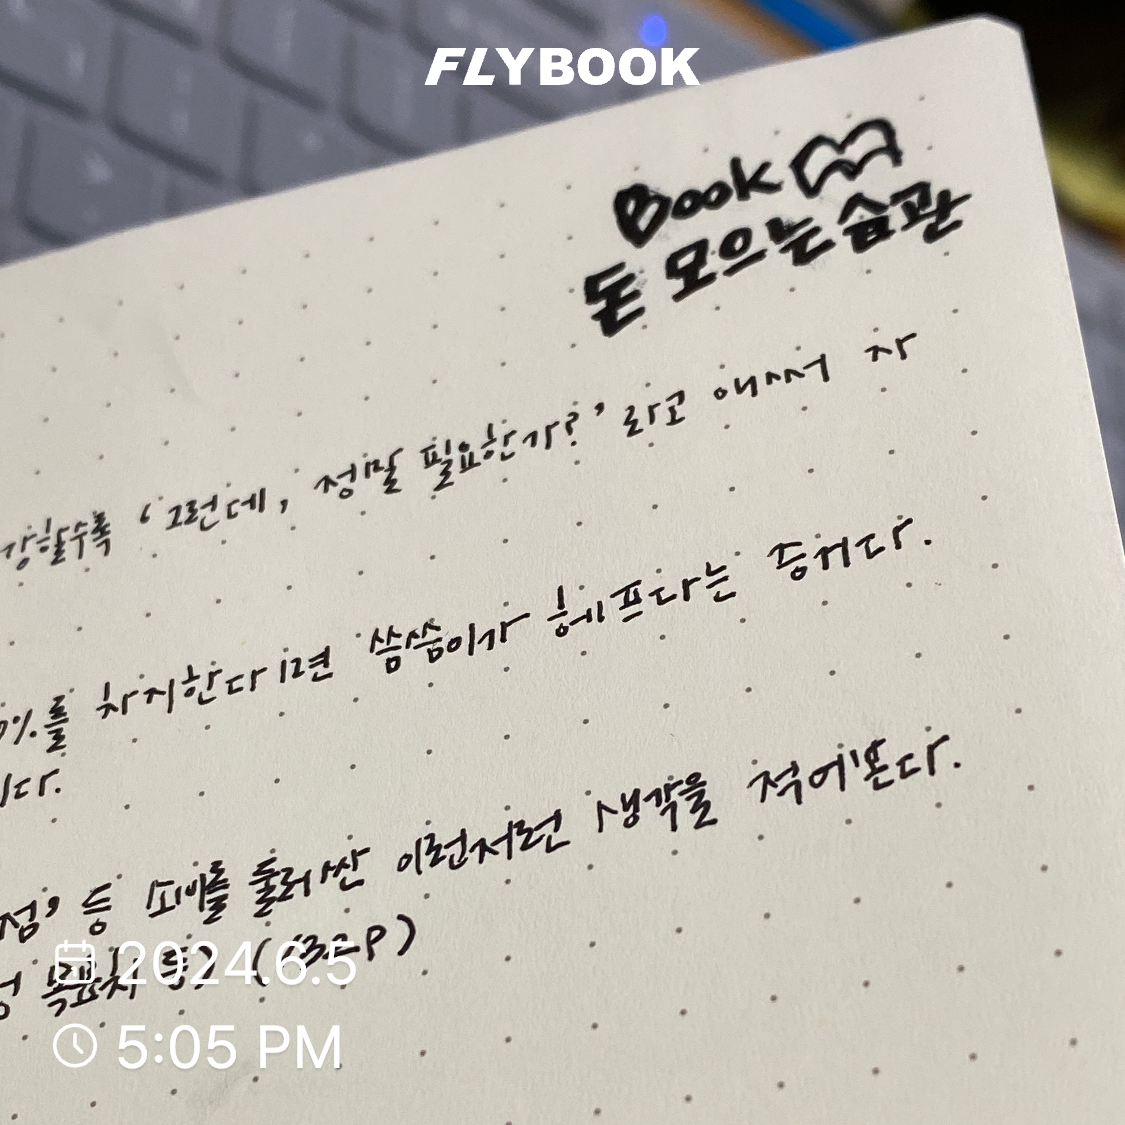 FLYBOOK
Book
돈 모으는 습관
강할수록 '그런데, 정말 필요한가?'라고 애써 자
%를 차지한다면 씀씀이가 헤프다는 증거다.
니다.
점' 등 소비를 둘러싼 이런저런 생각을 적어본다.
목표치 등) (132P)
2024.6.5
5:05 PM